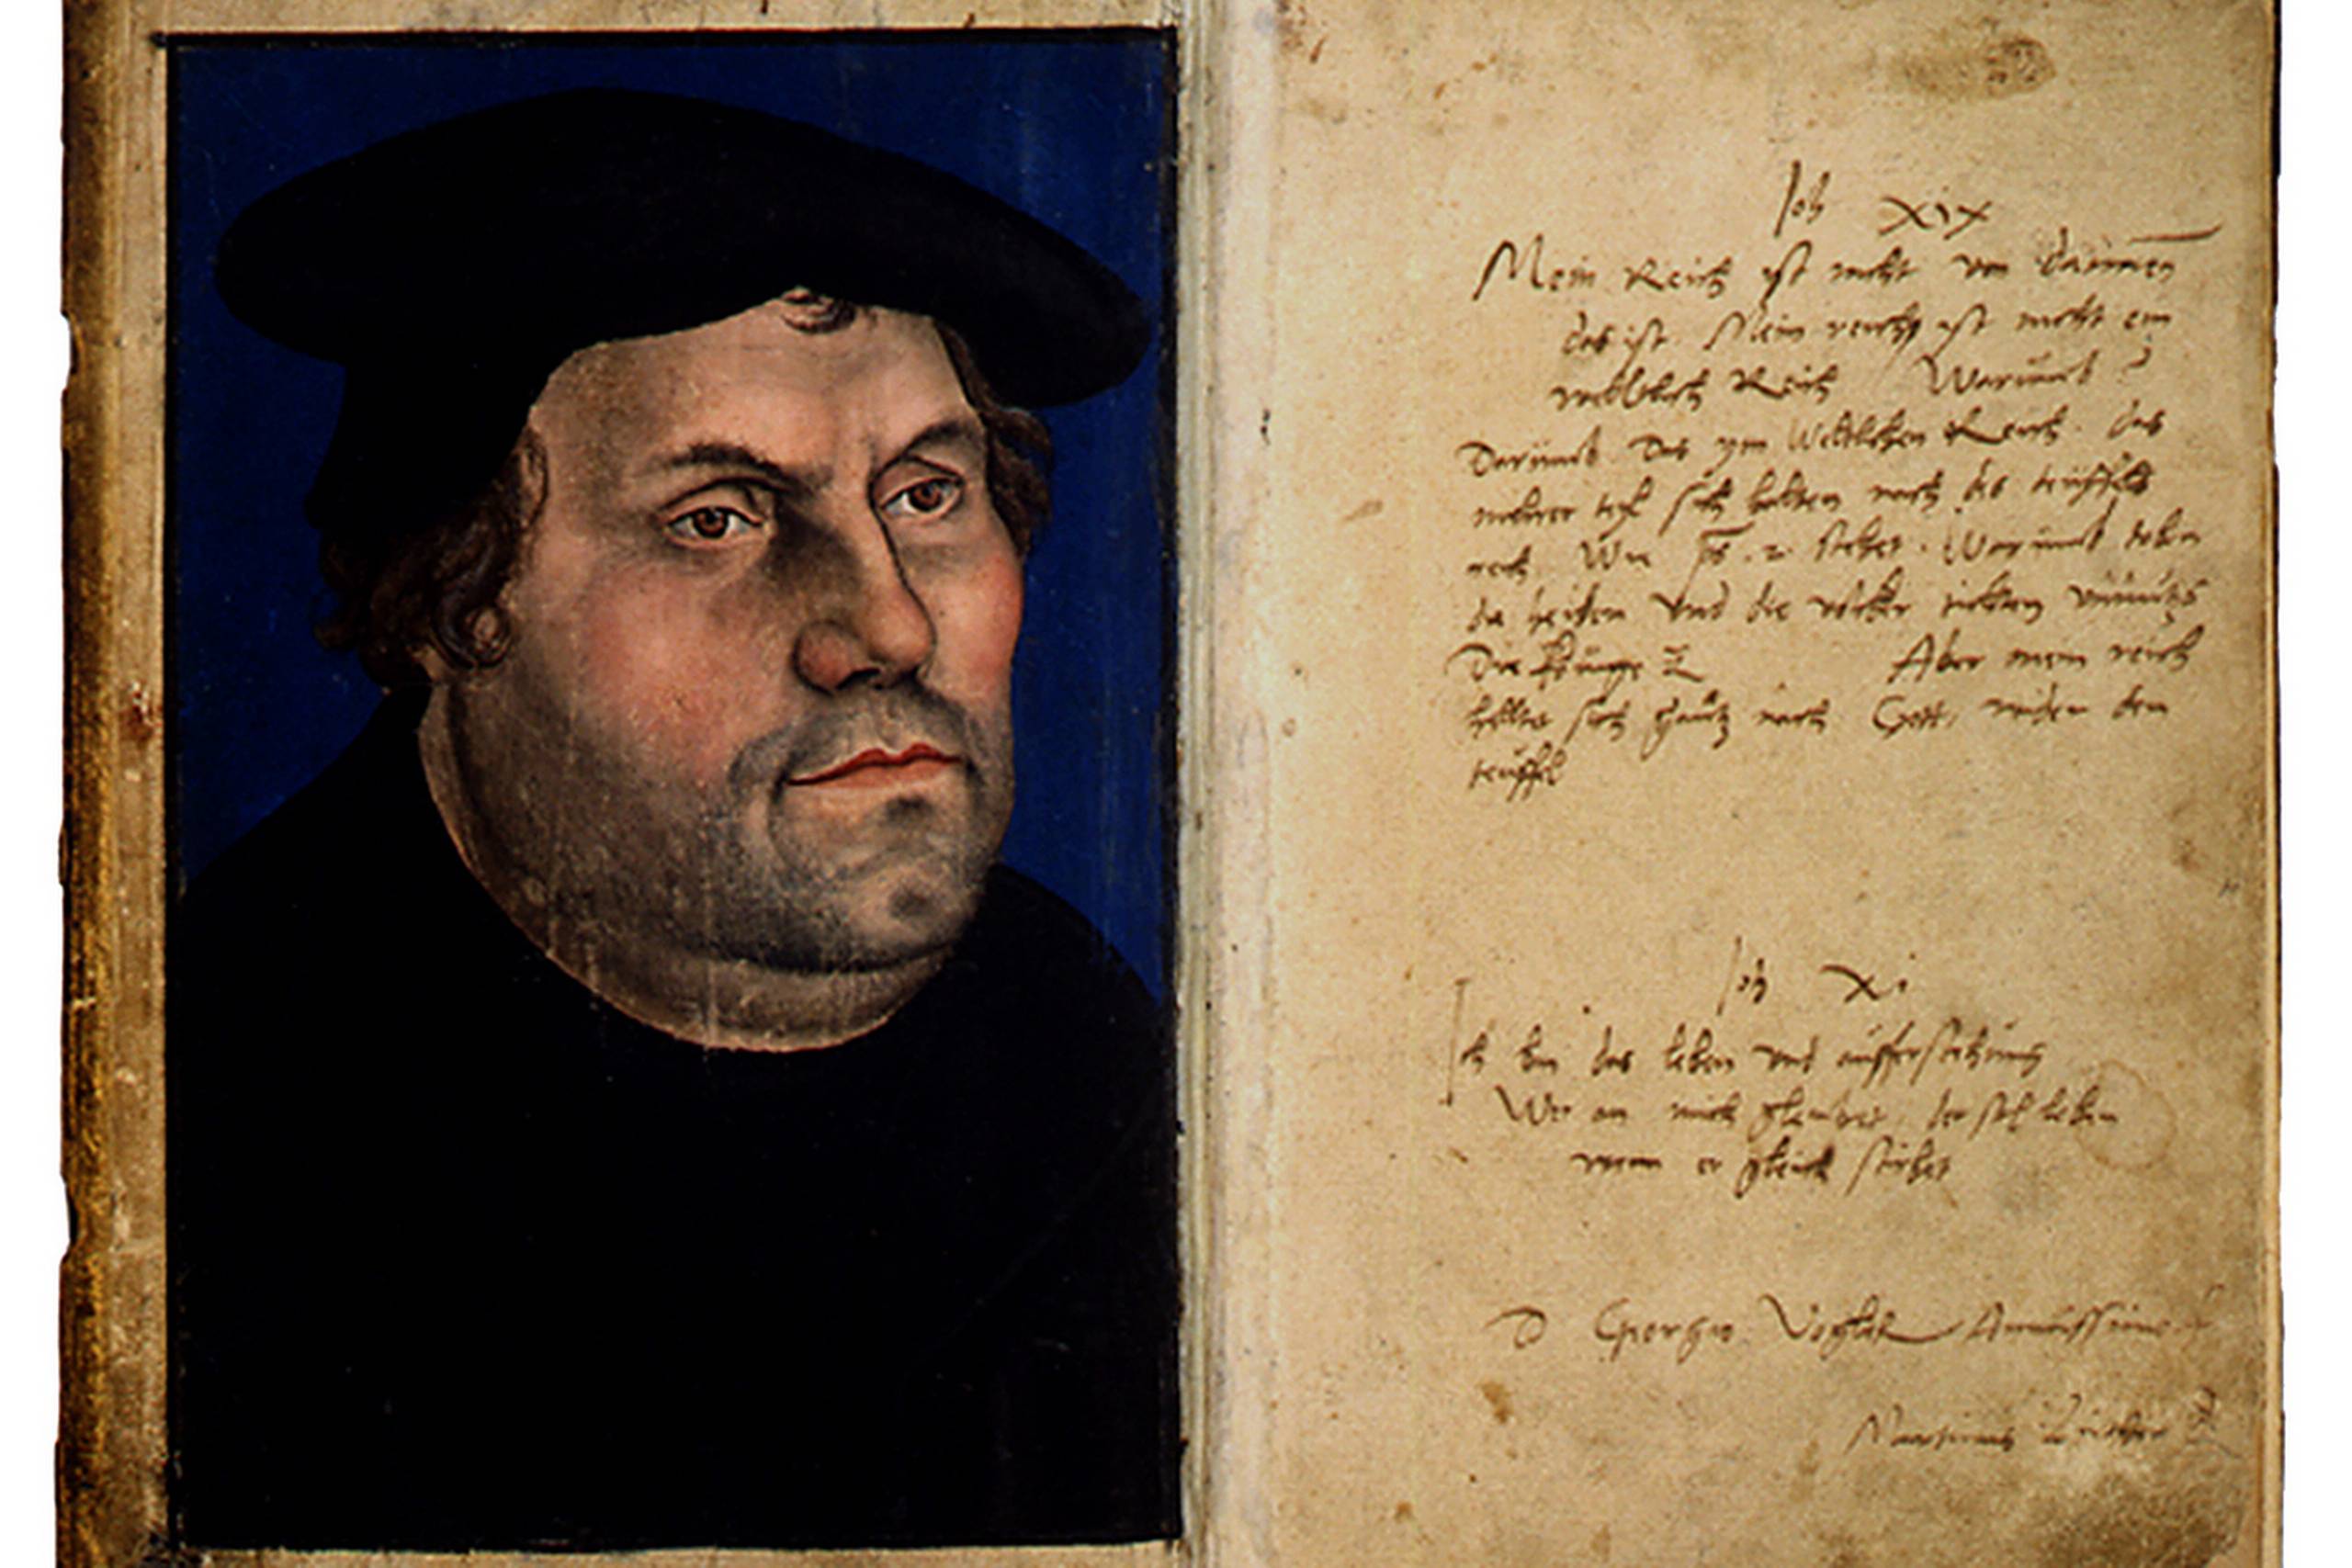 Joh XIX
Mein Reich ist nicht von dannen
das ist Mein reich ist nicht ein
welltlich Reich Warumb ?
Darumb Das ym Welltlichen Reich das
mehrer teyl sich hallten nach des teuffels
reich Wie ps. 2. stehet. Warumb toben
die heiden Und die völcker
Die könige Aber mein reich
sich gantz nach Gott, widder den
teuffel
Joh XI
Ich bin das leben und aufferstehung
Wer an mich gleubet, der sol leben
wenn er gleich stirbet
D Georgio
Martinus Luther D